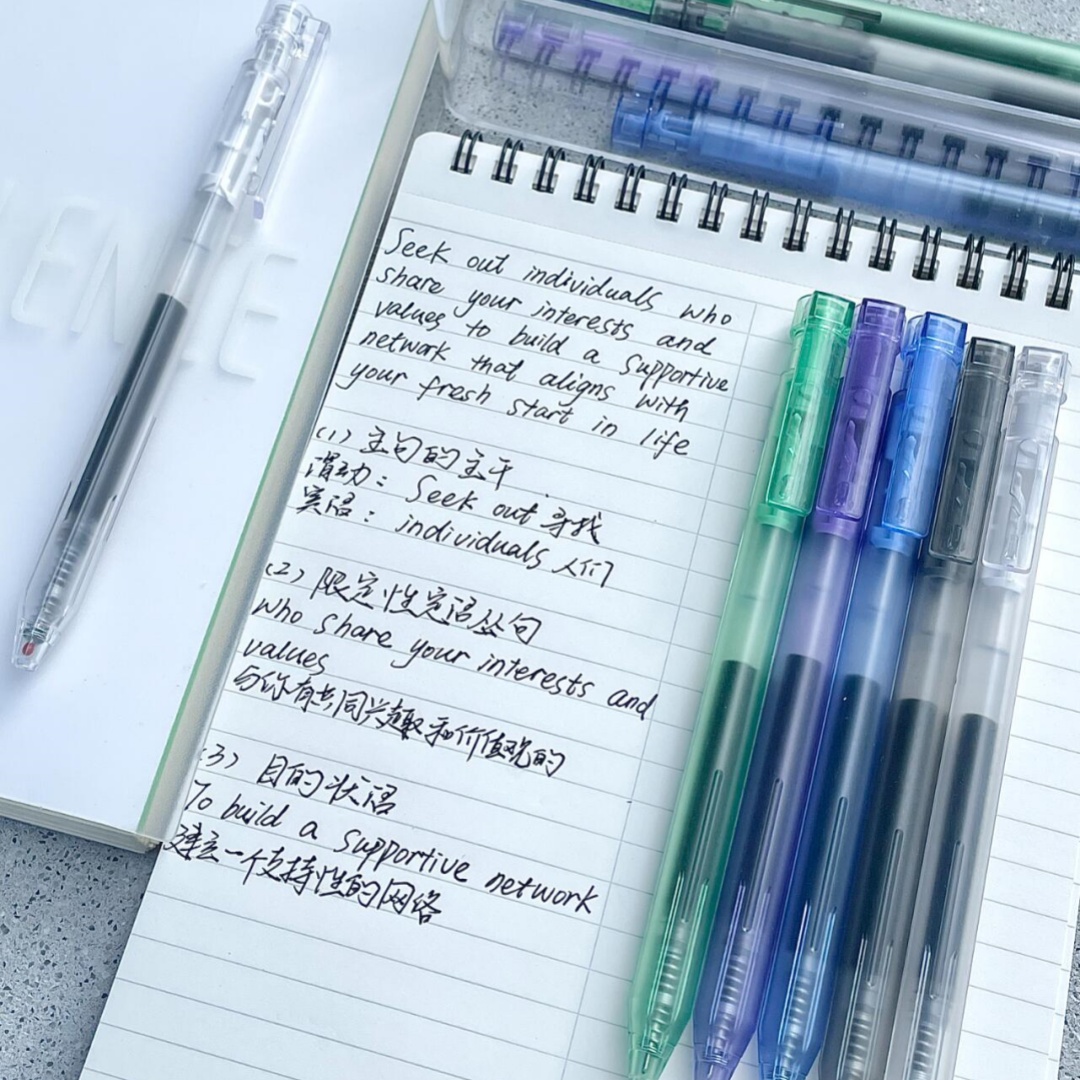 Seek out individuals who
share your interests and
values to build a supportive
network that aligns with
your fresh start in life
(1) 主句的主干
谓动: Seek out 寻找
宾语: individuals 人们
(2) 限定性定语从句
who share your interests and
values
与你有共同兴趣和价值观的
(3) 目的状语
To build a supportive network
建立一个支持性的网络